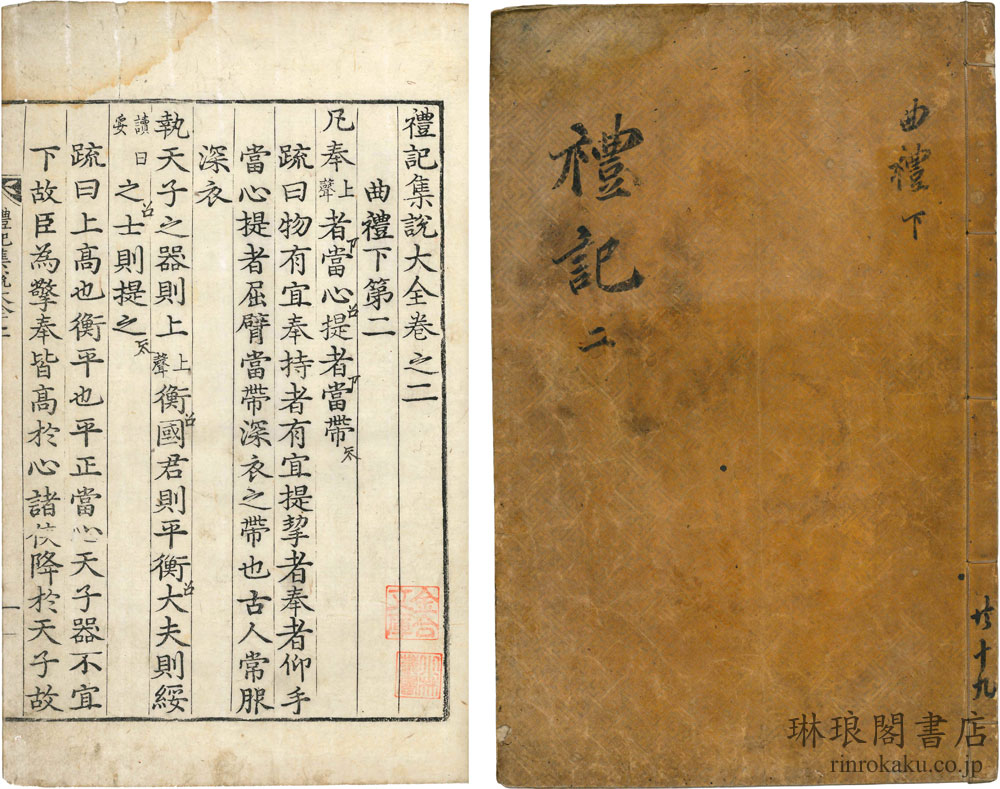 禮記集說大全卷之二
曲禮下第二
凡奉上聲者當心提者當帶
疏曰物有宜奉持者有宜提挈者奉者仰手
當心提者屈臂當帶深衣之帶也古人常服
深衣
執天子之器則上上聲衡國君則平衡大夫則綏
讀曰妥之士則提之
疏曰上高也衡平也平正當心天子器不宜
下故臣為擎奉皆高於心諸侯降於天子故
禮記集說大
一
曲禮下
禮記 二
共十九
琳琅閣書店
rinrokaku.co.jp